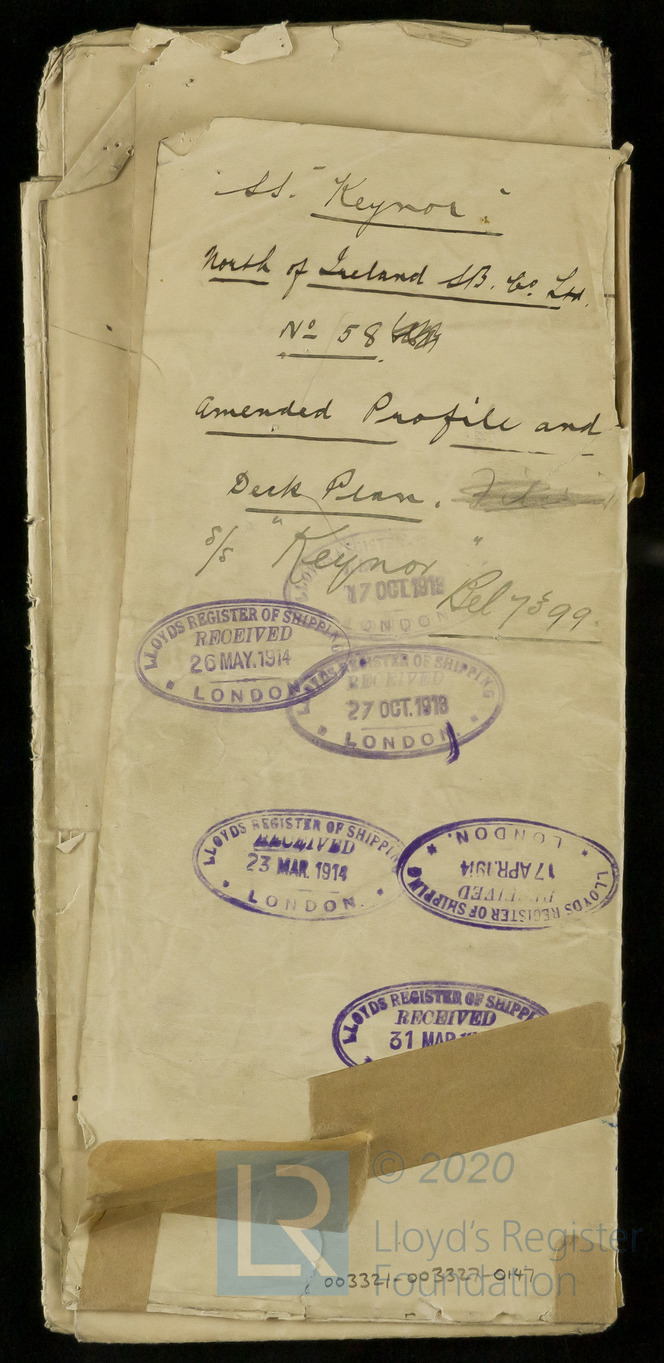 SS. "Keynor".
North of Ireland SB. Co. Ltd.
No 58
Amended Profile and
Deck Plan.
s/s "Keynor"
17 OCT. 1913
LONDON
Bel 7399.
LLOYDS REGISTER OF SHIPPING
RECEIVED
26 MAY. 1914
LONDON
LLOYDS REGISTER OF SHIPPING
RECEIVED
27 OCT. 1913
LONDON
LLOYDS REGISTER OF SHIPPIN
RECEIVED
23 MAR. 1914
LONDON.
LLOYDS REGISTER OF SHIPPING
RECEIVED
17 APR. 1914
LONDON.
LLOYDS REGISTER OF SHIPPI
RECEIVED
31 MAR
LR
© 2020
Lloyd's Register
Foundation
003321-003327-0147